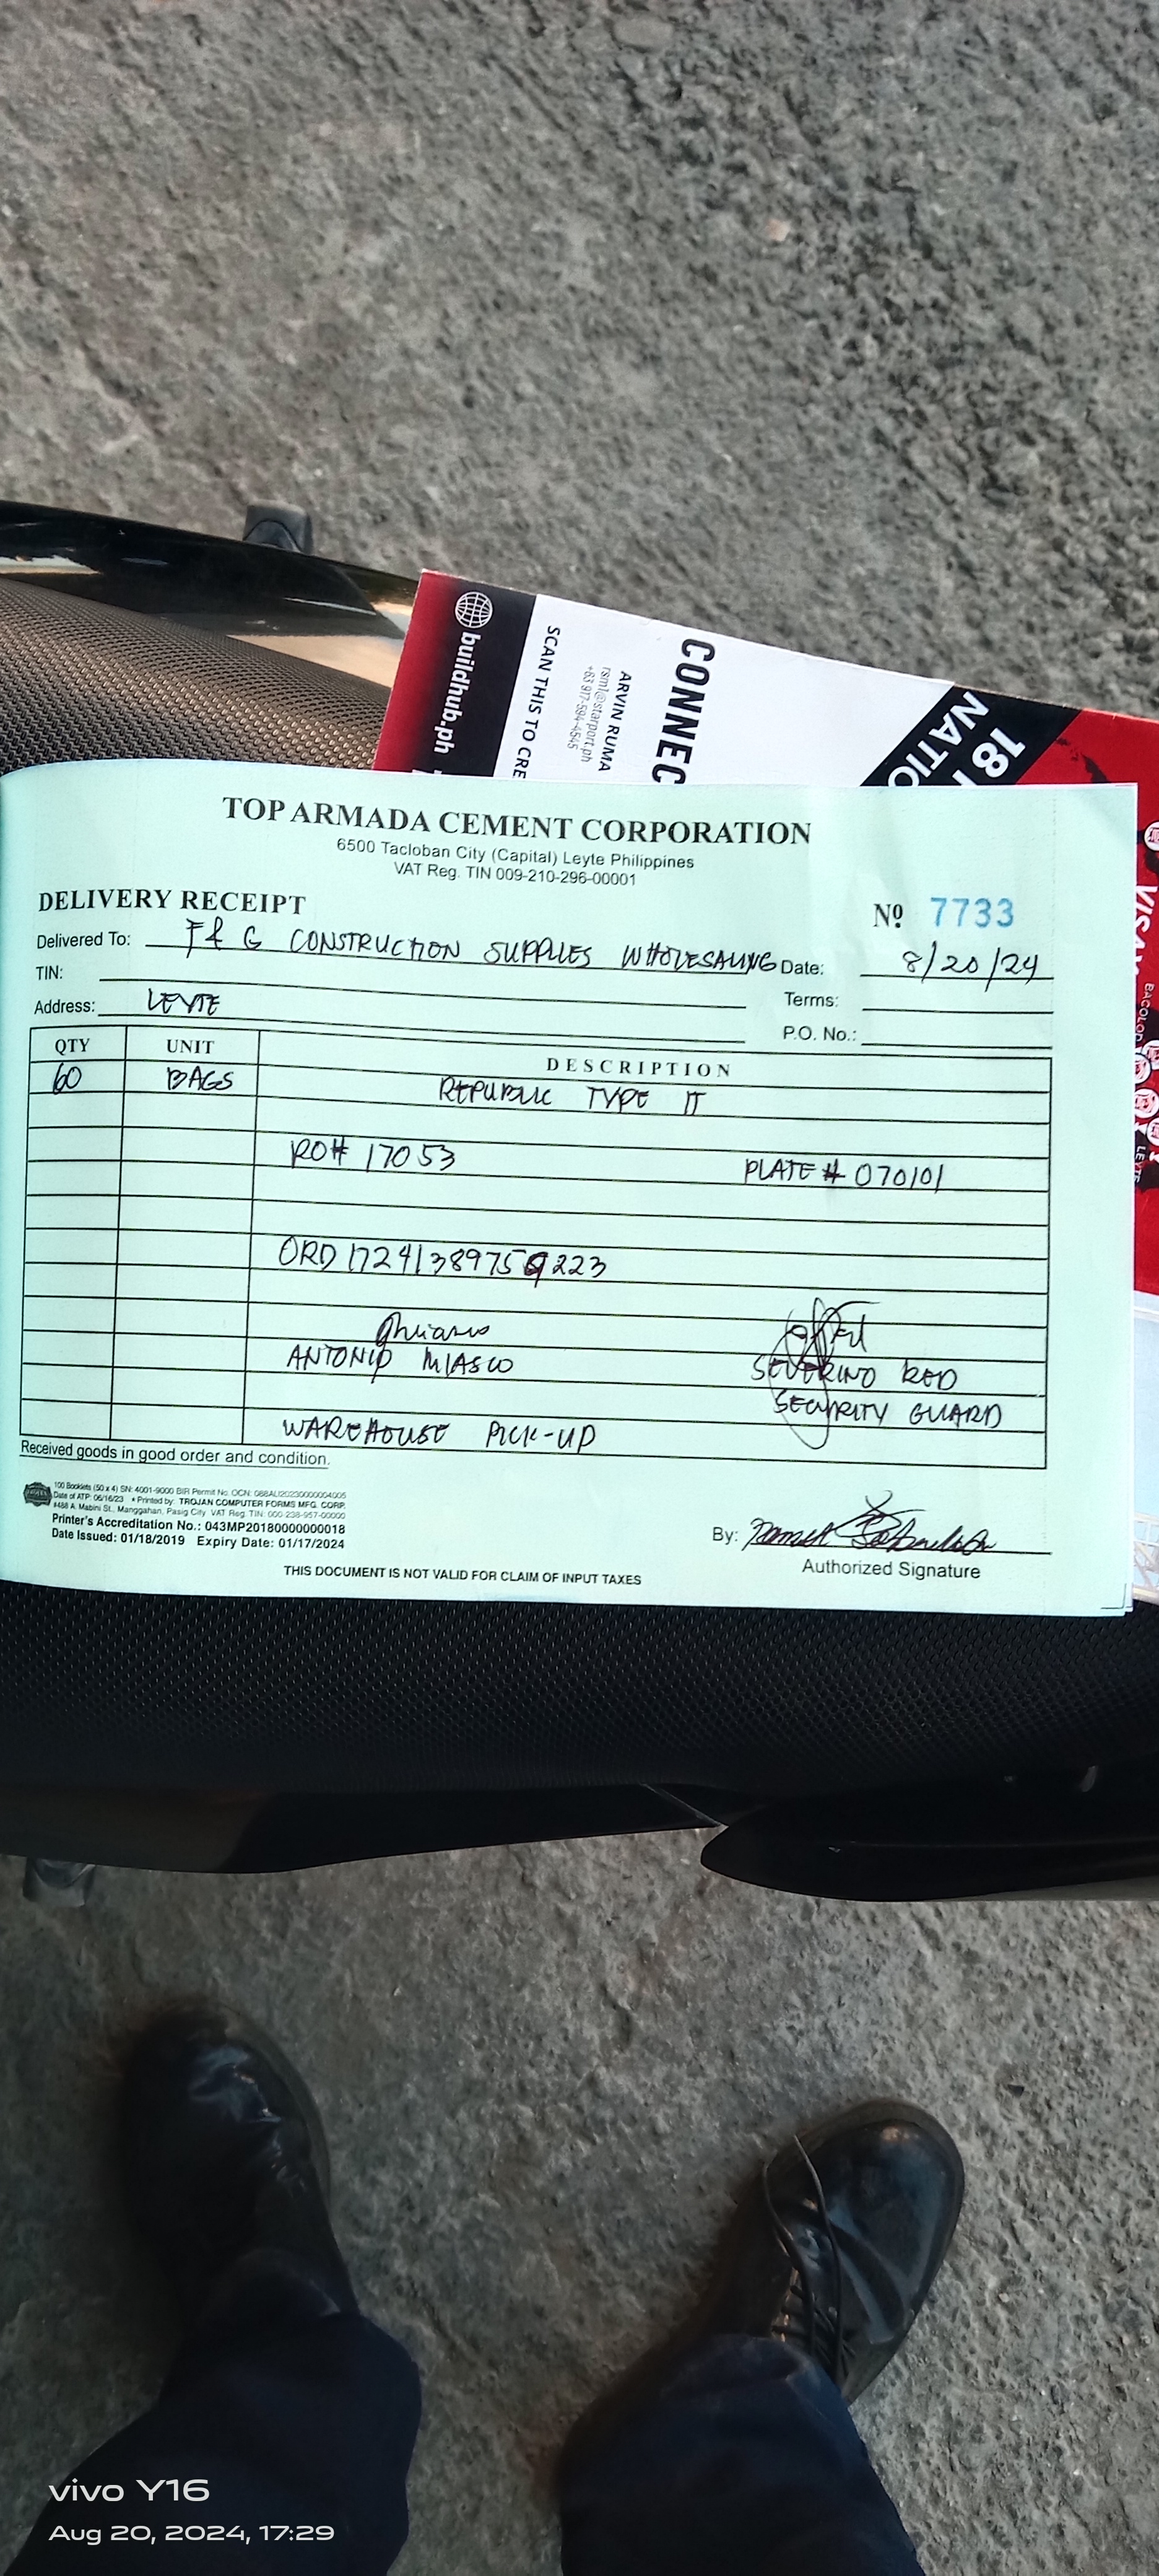 buildhub.ph
SCAN THIS TO CRE
ARVIN RUMA
CONNEC
18
NATIO
TOP ARMADA CEMENT CORPORATION
6500 Tacloban City (Capital) Leyte Philippines
VAT Reg. TIN 009-210-296-00001
DELIVERY RECEIPT
Nº 7733
Delivered To: F & G CONSTRUCTION SUPPLIES WHOLESALING Date: 8/20/24
TIN: Terms:
Address: LEYTE
P.O. No.:
QTY UNIT DESCRIPTION
60 BAGS REPUBLIC TYPE IT
RO# 17053 PLATE # 070101
ORD 17241389759223
ANTONIO MIASCO SEVERINO RED
SECURITY GUARD
WAREHOUSE PICK-UP
Received goods in good order and condition.
100 Booklets (50 x 4) SN: 4001-9000 BIR Permit No. OCN:
Date of ATP: 06/16/23 • Printed by: TROJAN COMPUTER FORMS MFG. CORP.
#488 A. Mabini St., Manggahan, Pasig City VAT Reg. TIN: 000-238-957-00000
Printer's Accreditation No.: 043MP20180000000018
Date Issued: 01/18/2019 Expiry Date: 01/17/2024
By:
Authorized Signature
THIS DOCUMENT IS NOT VALID FOR CLAIM OF INPUT TAXES
VISAY
BACOLOD
LEYTE
vivo Y16
Aug 20, 2024, 17:29